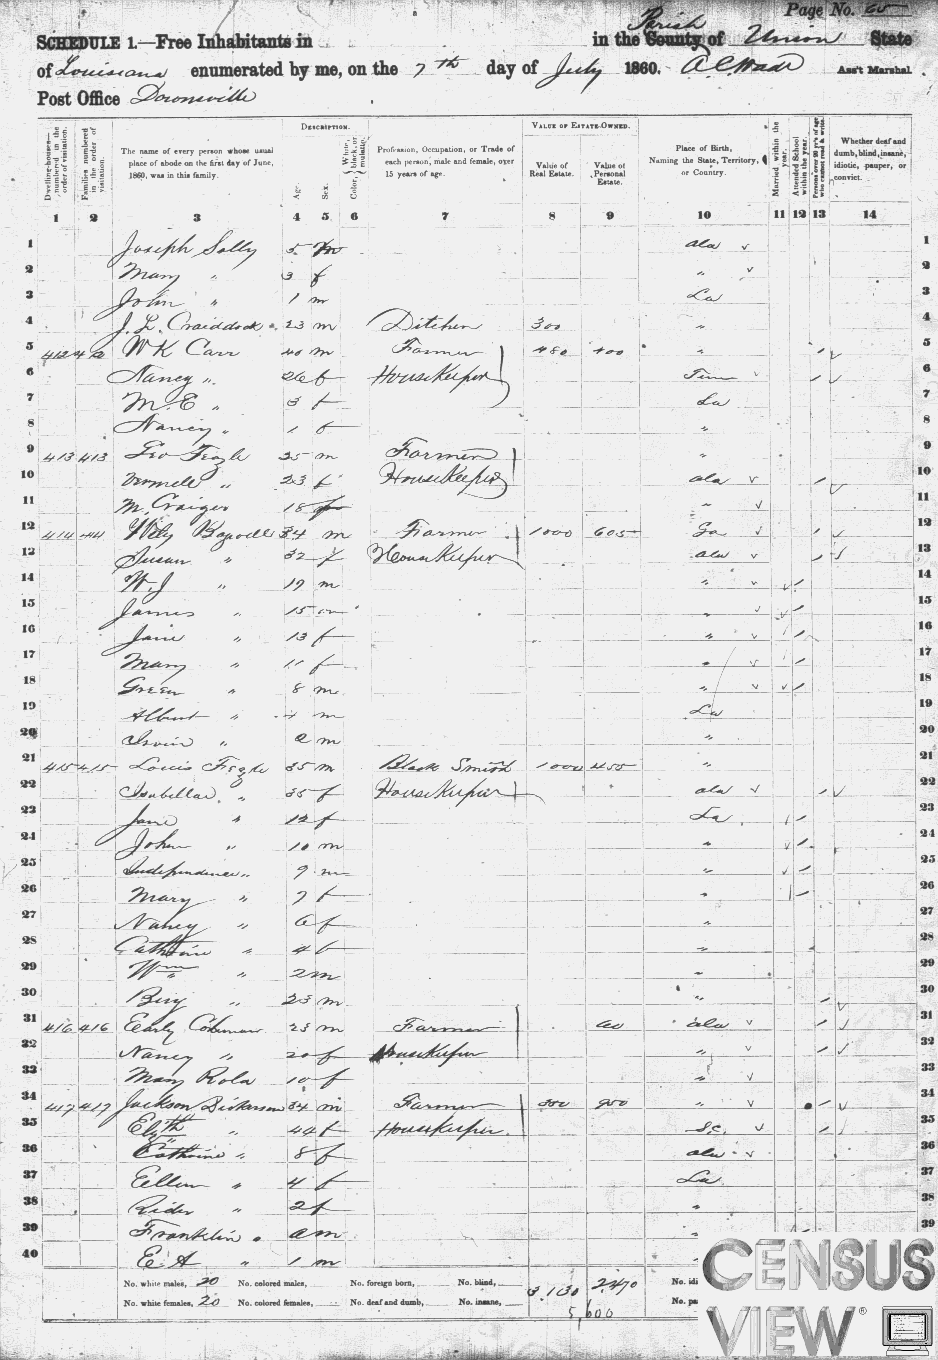 Page No. 65
SCHEDULE 1.—Free Inhabitants in in the County of Parish Union State
of Louisiana enumerated by me, on the 7th day of July 1860. A C Wade Ass't Marshal.
Post Office Downsville
Dwelling-houses—numbered in the order of visitation.
Families numbered in the order of visitation.
The name of every person whose usual place of abode on the first day of June, 1860, was in this family.
DESCRIPTION.
Age.
Sex.
Color, White, black, or mulatto.
Profession, Occupation, or Trade of each person, male and female, over 15 years of age.
VALUE OF ESTATE OWNED.
Value of Real Estate.
Value of Personal Estate.
Place of Birth, Naming the State, Territory, or Country.
Married within the year.
Attended School within the year.
Persons over 20 y'rs of age who cannot read & write.
Whether deaf and dumb, blind, insane, idiotic, pauper, or convict.
1 2 3 4 5 6 7 8 9 10 11 12 13 14
1 Joseph Solly 5 m Ala 1
2 Mary " 3 f " 2
3 John " 1 m La 3
4 J. L. Craiddock 23 m Ditcher 300 " 4
5 412 412 W K Carr 40 m Farmer 480 400 " 5
6 Nancy " 26 f HouseKeeper Tenn 6
7 M. E " 3 f La 7
8 Nancy " 1 f " 8
9 413 413 Leo Feazle 25 m Farmer " 9
10 " 23 f HouseKeeper Ala 10
11 M. 18 " 11
12 414 414 Wily 34 m Farmer 1000 605 Ga 12
13 Susan " 32 f HouseKeeper Ala 13
14 W. J " 17 m " 14
15 James " 15 m " 15
16 Jane " 13 f " 16
17 Mary " 11 f " 17
18 Green " 8 m " 18
19 Albert " 4 m La 19
20 Irvin " 2 m " 20
21 415 415 Louis Feazle 35 m Black Smith 1000 455 " 21
22 Isabellar " 35 f HouseKeeper Ala 22
23 Jane " 12 f La 23
24 John " 10 m " 24
25 Independence " 9 m " 25
26 Mary " 7 f " 26
27 Nancy " 6 f " 27
28 Catherine " 4 f " 28
29 Wm " 2 m " 29
30 Berry " 23 m " 30
31 416 416 Early Coleman 23 m Farmer 60 Ala 31
32 Nancy " 20 f HouseKeeper " 32
33 Mary Rola 10 f " 33
34 417 417 Jackson Dickerson 34 m Farmer 350 950 " 34
35 Elizth " 44 f HouseKeeper S.C. 35
36 Catherine " 8 f Ala 36
37 Ellen " 4 f La 37
38 Rider " 2 f " 38
39 Franklin " m 39
40 E. A " 1 m
No. white males, 20 No. colored males, No. foreign born, No. blind, 3.130 2470 No. idi
No. white females, 20 No. colored females, No. deaf and dumb, No. insane, 5,600 No. pa
CENSUS
VIEW®